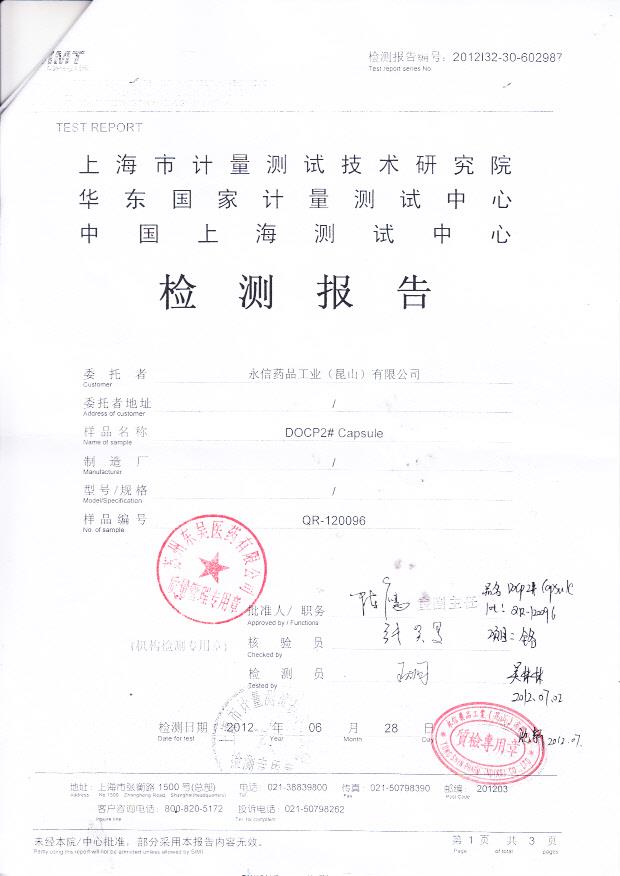 检测报告编号：2012I32-30-602987
Test report series No.
TEST REPORT
上海市计量测试技术研究院
华东国家计量测试中心
中国上海测试中心
检测报告
委托者 永信药品工业（昆山）有限公司
Customer
委托者地址 /
Address of customer
样品名称 DOCP2# Capsule
Name of sample
制造厂 /
Manufacturer
型号/规格 /
Model/Specification
样品编号 QR-120096
No. of sample
苏州东吴医药有限公司
质量管理专用章
批准人/职务 检测主任
Approved by / Functions
(机构检测专用章) 核验员
Checked by
检测员
Tested by
品名 DOCP2# Capsule
Lot: QR-120096
项目: 铬
2012.07.02
检测日期 2012 年 06 月 28 日
Date for test Year Month Day
質檢專用章
2012.07.
地址：上海市张衡路1500号(总部) 电话：021-38839800 传真：021-50798390 邮编：201203
Address No.1500 Zhangheng Road, Shanghai(headquarters) Tel Fax Post Code
客户咨询电话：800-820-5172 投诉电话：021-50798262
Inquire line Tel. for complaint
未经本院/中心批准，部分采用本报告内容无效。
Partly using this report will not be admitted unless allowed by SIMT
第 1 页 共 3 页
Page of total pages